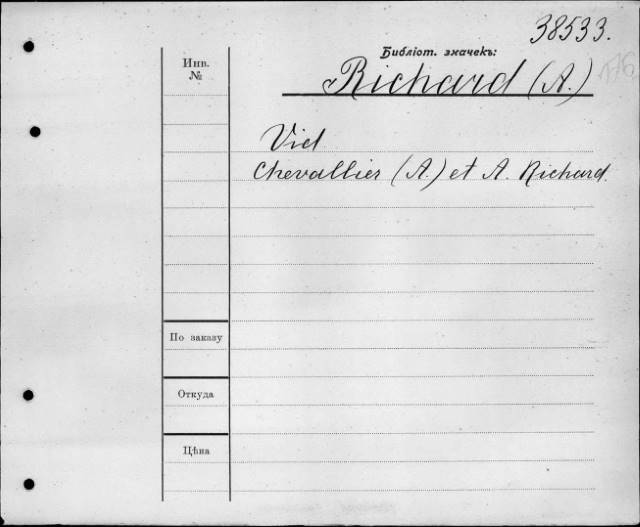 38533.
Библіот. значекъ:
Инв.
№
Richard (A.)
Vid
Chevallier (A.) et A. Richard.
По заказу
Откуда
Цѣна